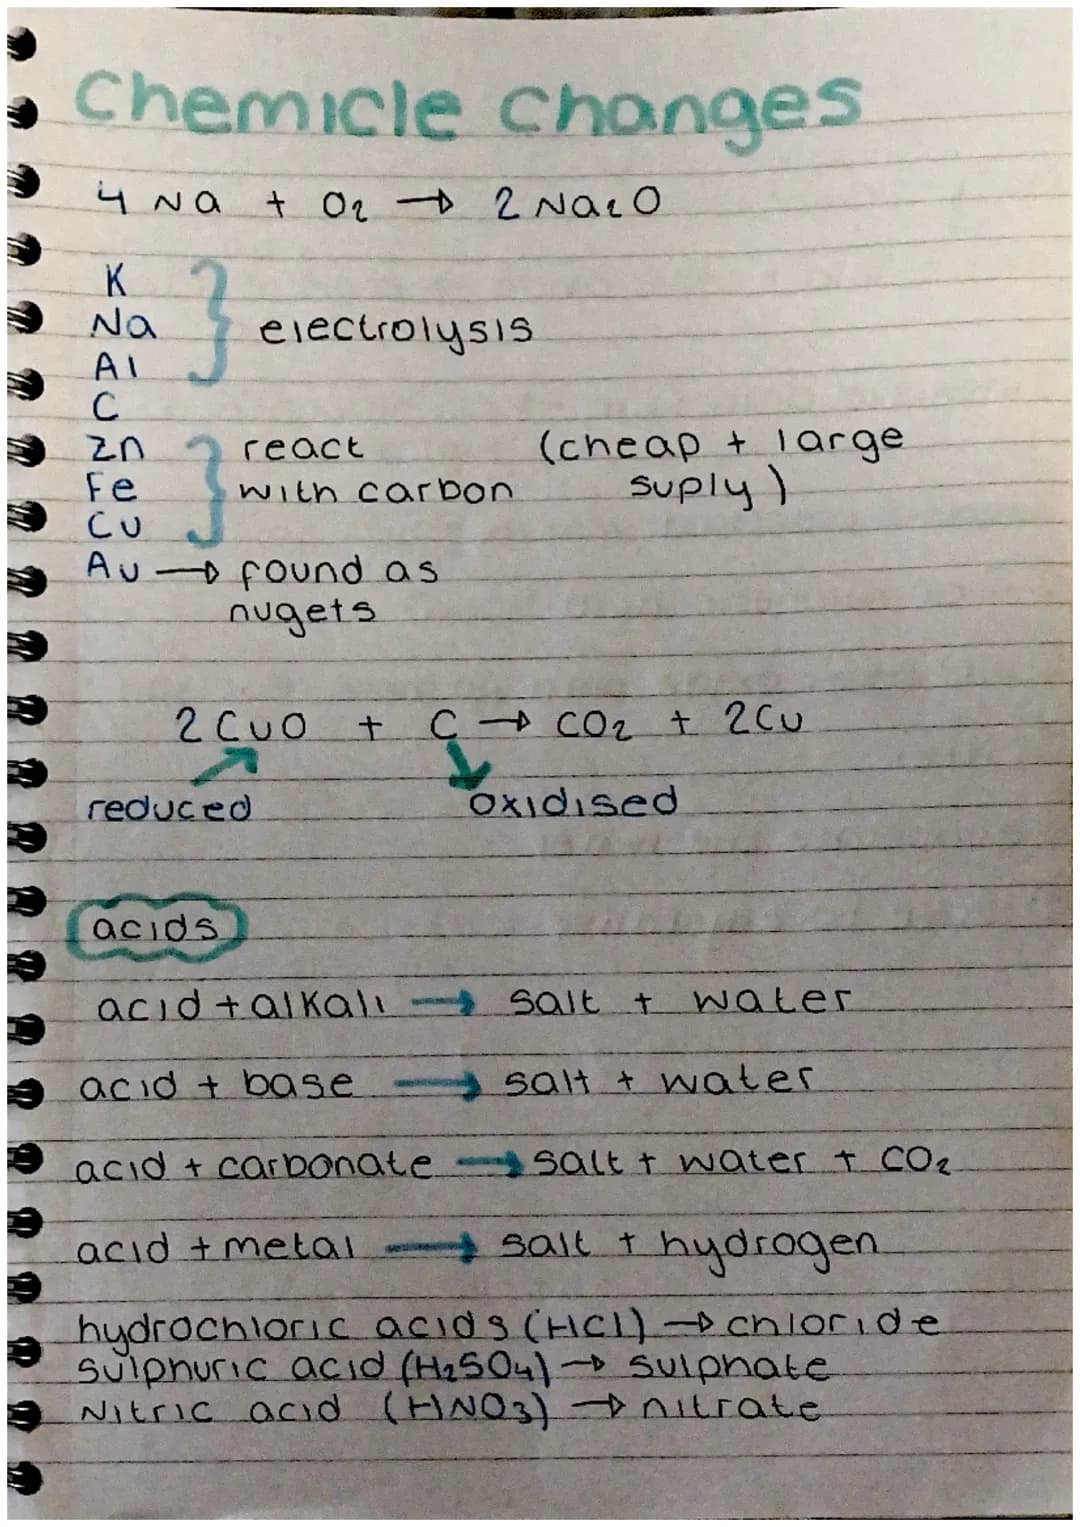 Chemicle Changes
4 Na + O₂ → 2 Na₂O
K
Na electrolysis
Al
C
Zn react (cheap + large
Fe with carbon suply)
Cu
Au → found as
nugets
2 CuO + C → CO₂ + 2Cu
reduced oxidised
acids
acid + alkali → salt + water
acid + base → salt + water
acid + carbonate → salt + water + CO₂
acid + metal → salt + hydrogen
hydrochloric acids (HCl) → chloride
sulphuric acid (H₂SO₄) → sulphate
Nitric acid (HNO₃) → nitrate